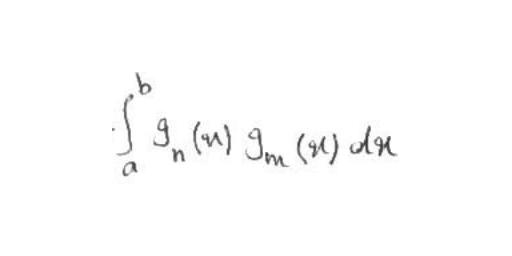 ∫_a^b g_n(x) g_m(x) dx